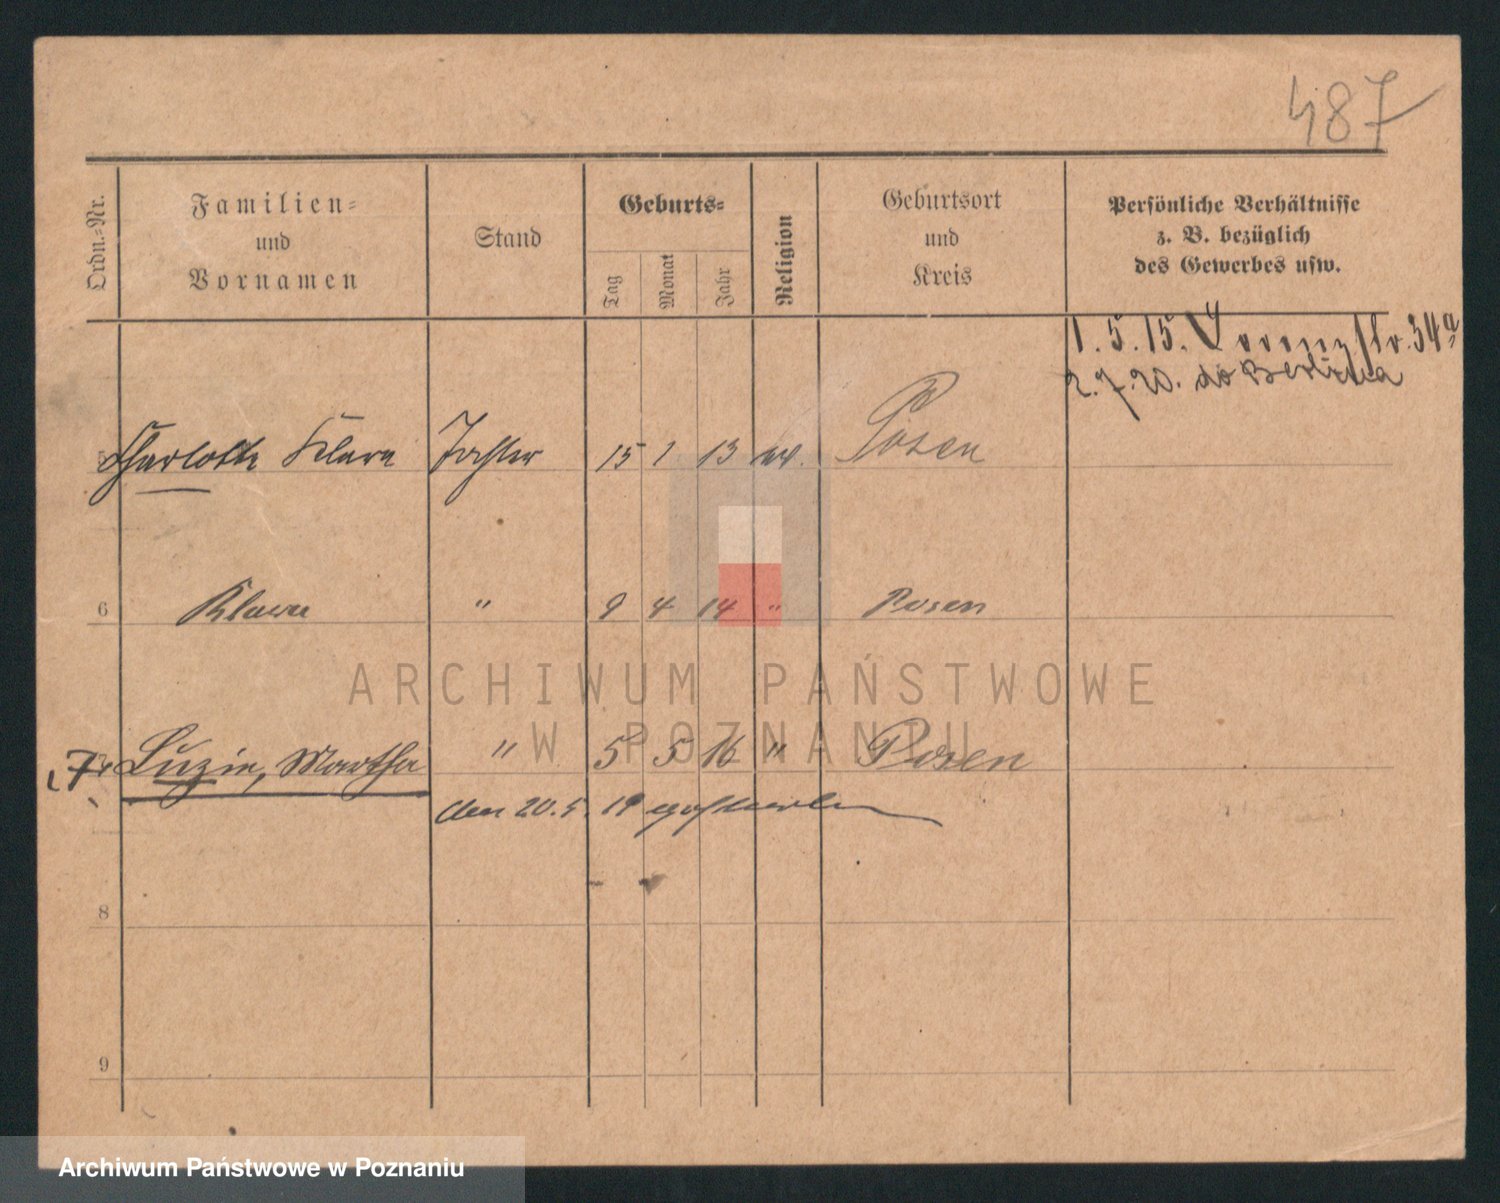 487
Ordn.-Nr.
Familien-
und
Vornamen
Stand
Geburts-
Tag
Monat
Jahr
Religion
Geburtsort
und
Kreis
Persönliche Verhältnisse
z. B. bezüglich
des Gewerbes usw.
1.5.15. Lorenzstr. 34a
2.7.20. do Berlina
5 Charlotte Klara Tochter 15 1 13 ev. Posen
6 Klara " 9 4 14 " Posen
7 Luzie, Martha " 5 5 16 " Posen
den 20.5.19 gestorben
8
9
ARCHIWUM PAŃSTWOWE
W POZNANIU
Archiwum Państwowe w Poznaniu